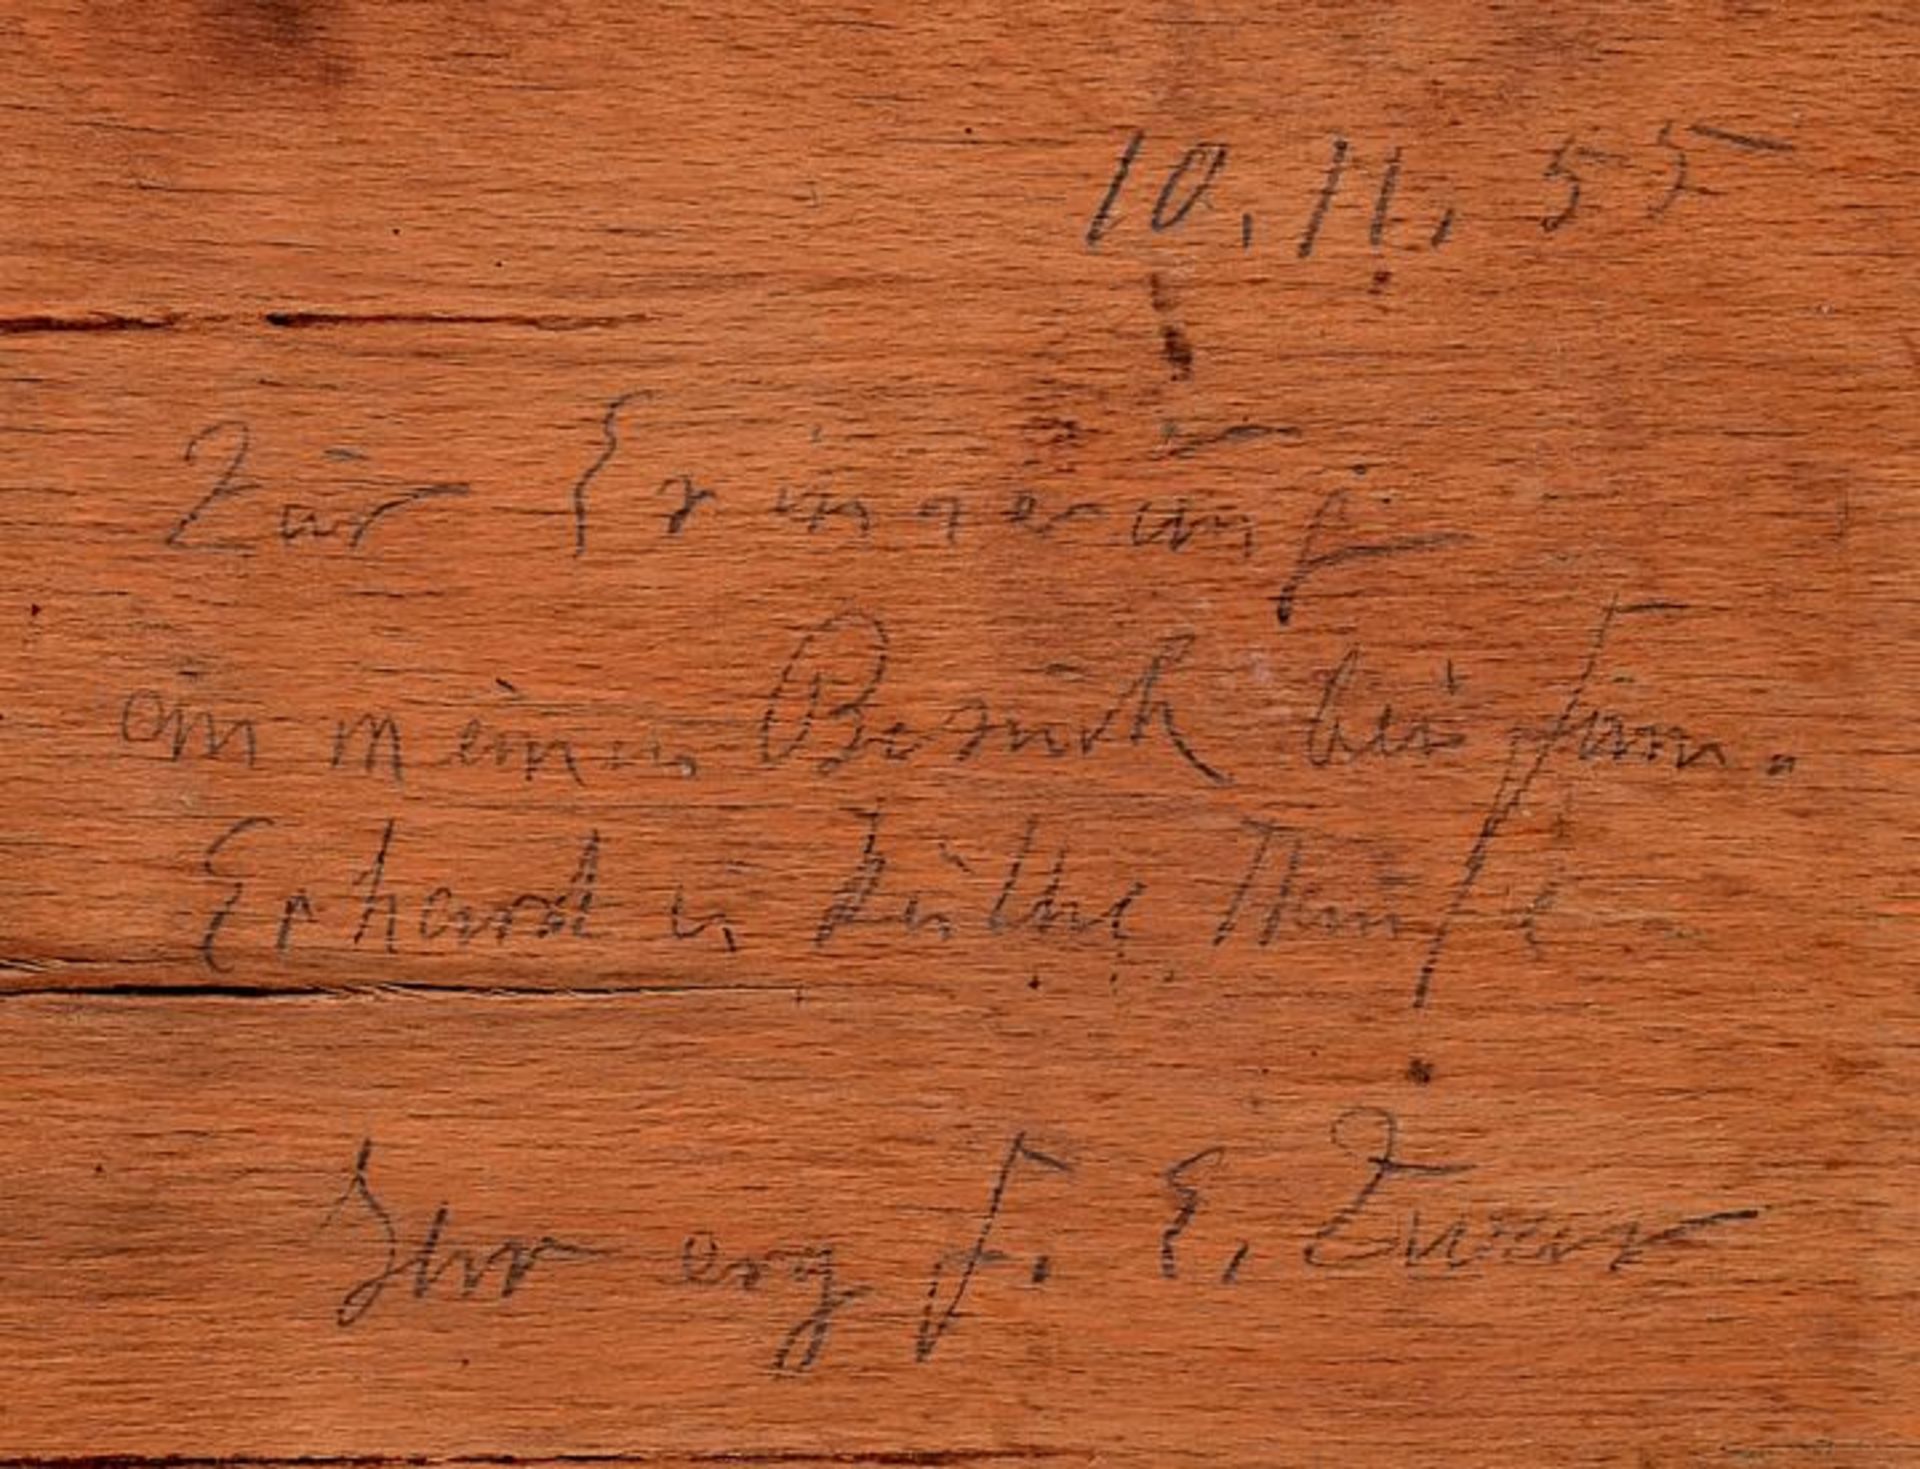 10. 11. 55
Zur Erinnerung
an meinen Besuch bei Fam.
Erhard u. Käthe
Ihr erg. F. E. Zwar